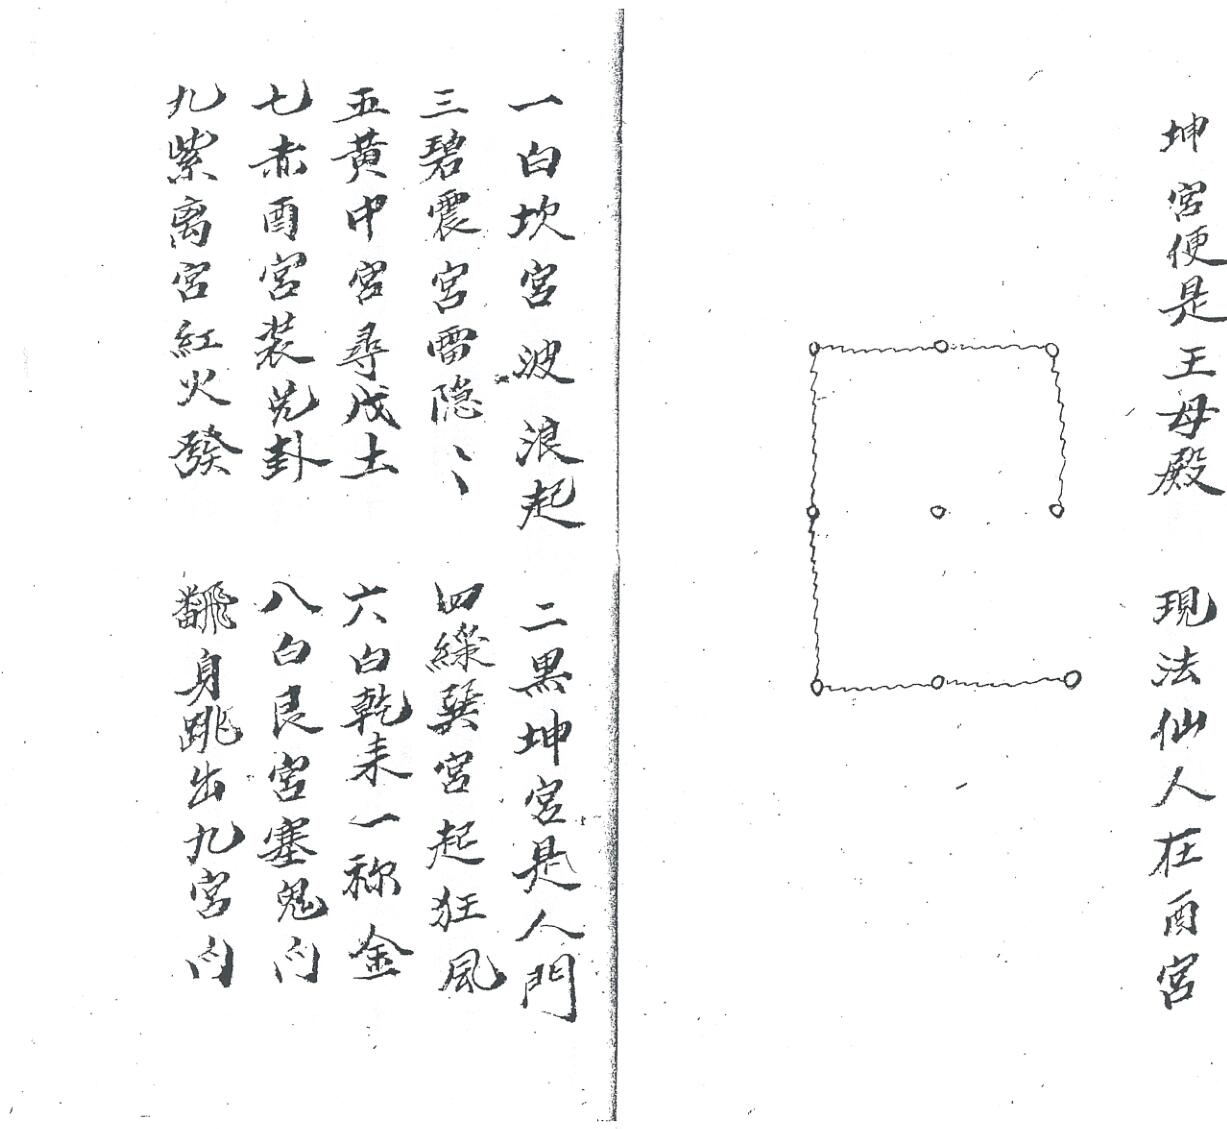 坤宮便是王母殿　現法仙人在酉宮
一白坎宮波浪起　二黑坤宮是人門
三碧震宮雷隐〻　四緑巽宮起狂風
五黃中宮尋戊土　六白乾来一称金
七赤酉宮装兑卦　八白艮宮塞鬼门
九紫离宮紅火發　翻身跳出九宮门